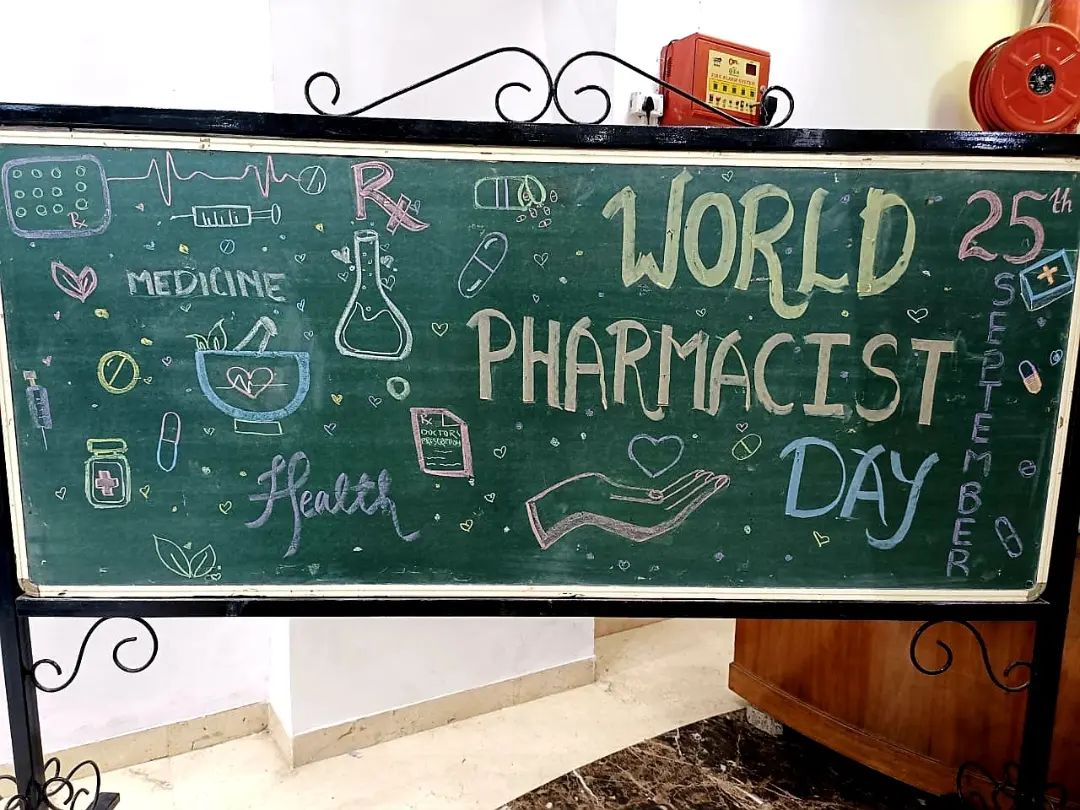 Rx
Rx
MEDICINE
Rx
DOCTOR'S
PRESCRIPTION
Health
WORLD
PHARMACIST
DAY
25th
SEPTEMBER
FIRE ALARM SYSTEM